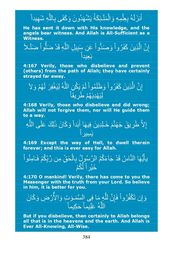 أَنزَلَهُ بِعِلْمِهِ وَالْمَلَائِكَةُ يَشْهَدُونَ وَكَفَى بِاللَّهِ شَهِيدًا
He has sent it down with His knowledge, and the
angels bear witness. And Allah is All-Sufficient as a
Witness.
إِنَّ الَّذِينَ كَفَرُوا وَصَدُّوا عَن سَبِيلِ اللَّهِ قَدْ ضَلُّوا ضَلَالًا
بَعِيدًا
4:167 Verily, those who disbelieve and prevent
(others) from the path of Allah; they have certainly
strayed far away.
إِنَّ الَّذِينَ كَفَرُوا وَظَلَمُوا لَمْ يَكُنِ اللَّهُ لِيَغْفِرَ لَهُمْ وَلَا
لِيَهْدِيَهُمْ طَرِيقًا
4:168 Verily, those who disbelieve and did wrong;
Allah will not forgive them, nor will He guide them
to a way.
إِلَّا طَرِيقَ جَهَنَّمَ خَالِدِينَ فِيهَا أَبَدًا وَكَانَ ذَلِكَ عَلَى اللَّهِ
يَسِيرًا
4:169 Except the way of Hell, to dwell therein
forever; and this is ever easy for Allah.
يَا أَيُّهَا النَّاسُ قَدْ جَاءَكُمُ الرَّسُولُ بِالْحَقِّ مِن رَّبِّكُمْ فَآمِنُوا
خَيْرًا لَّكُمْ
4:170 O mankind! Verily, there has come to you the
Messenger with the truth from your Lord. So believe
in him, it is better for you.
وَإِن تَكْفُرُوا فَإِنَّ لِلَّهِ مَا فِي السَّمَوَاتِ وَالْأَرْضِ وَكَانَ
اللَّهُ عَلِيمًا حَكِيمًا
But if you disbelieve, then certainly to Allah belongs
all that is in the heavens and the earth. And Allah is
Ever All-Knowing, All-Wise.
384